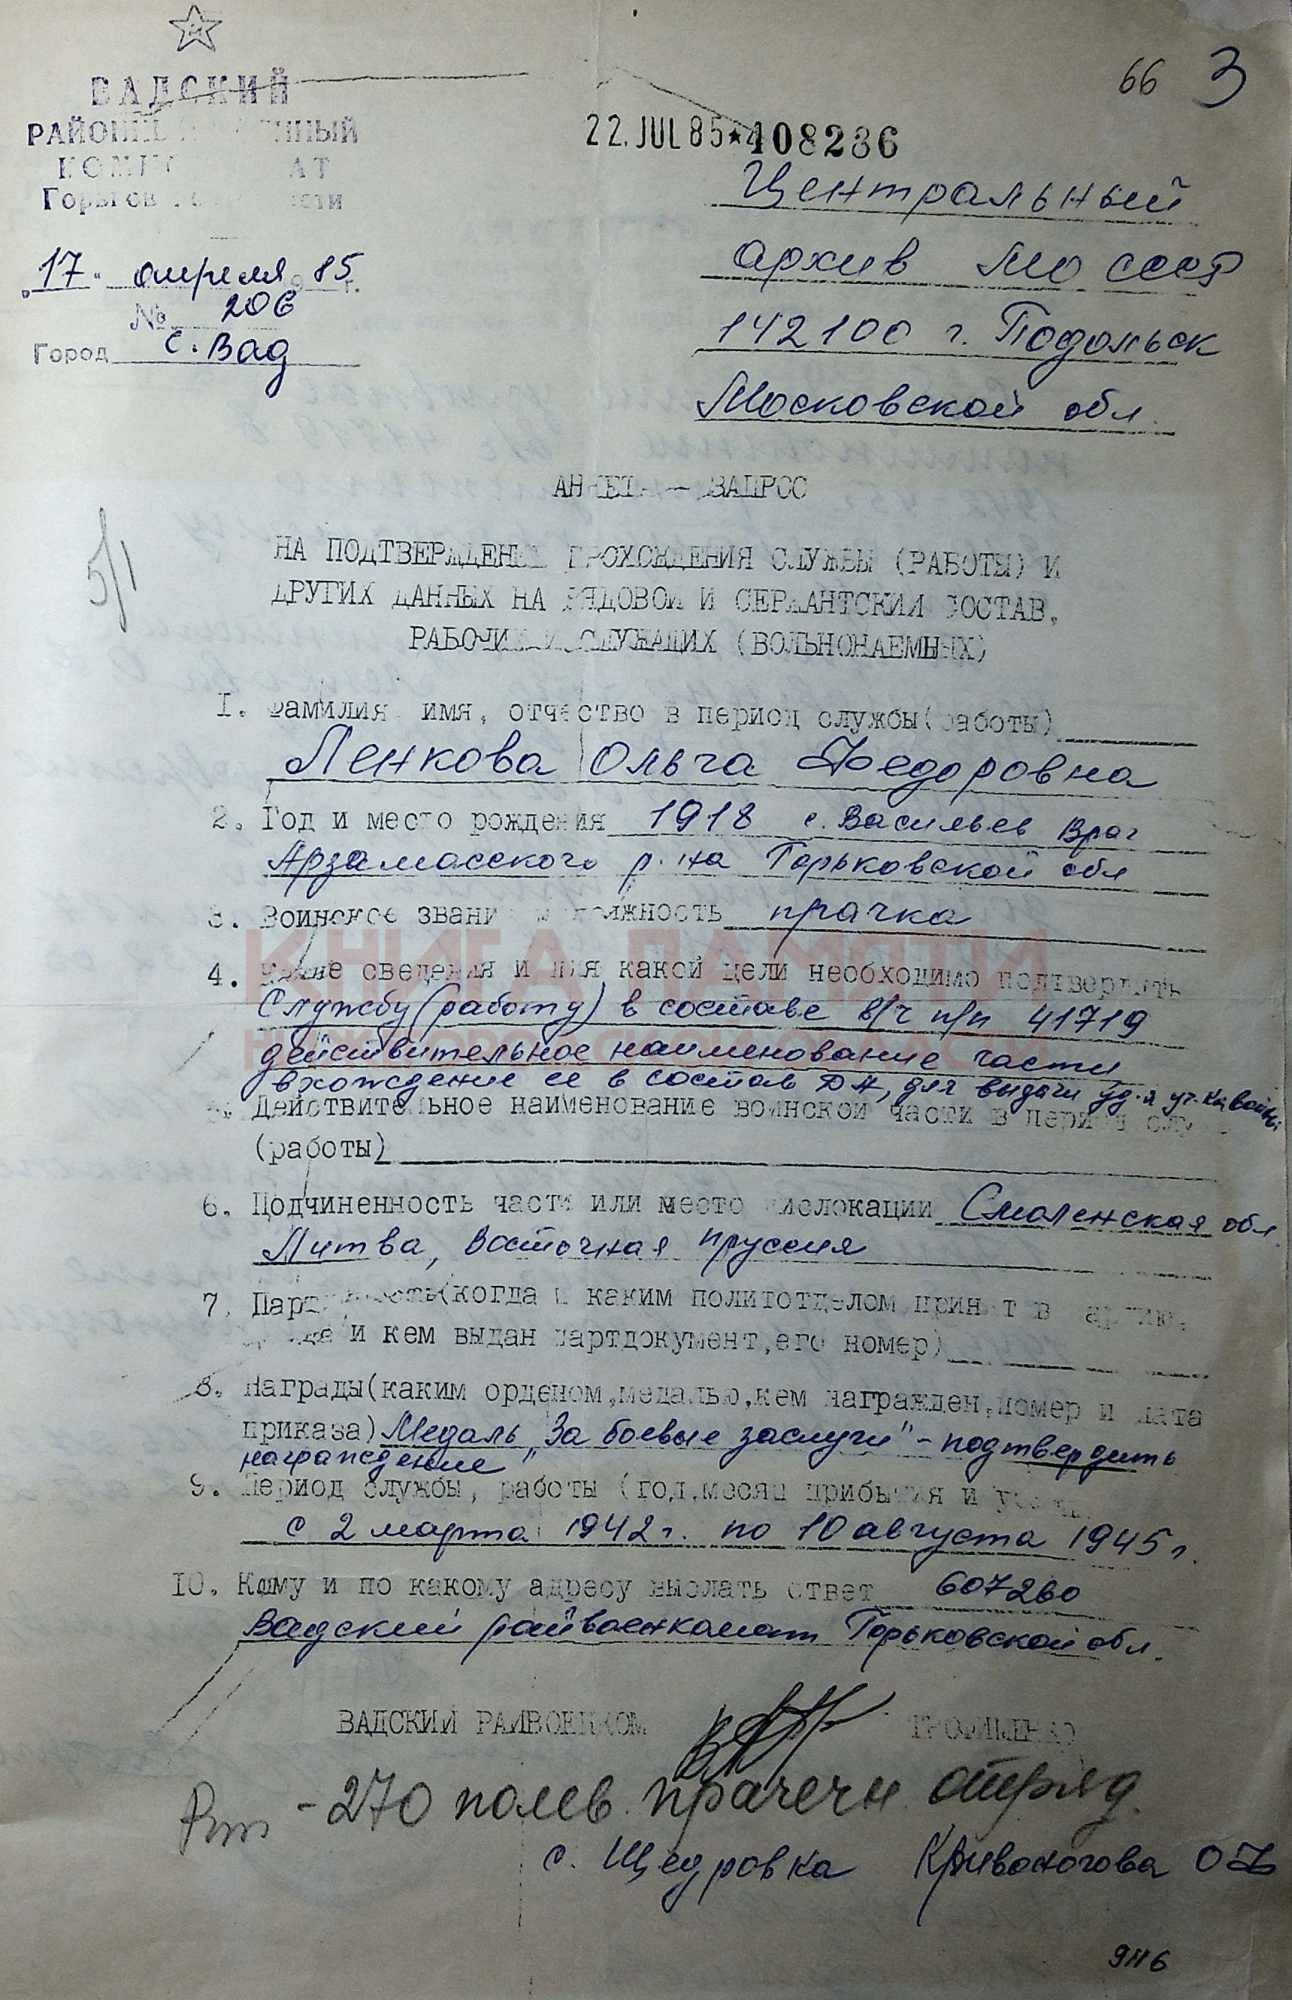 66 3
ВАДСКИЙ
РАЙОННЫЙ ВОЕННЫЙ
КОМИССАРИАТ
Горьковской области
22. JUL 85 ★ 408236
Центральный
архив МО СССР
142100 г. Подольск
Московской обл.
"17" апреля 1985 г.
№ 206
Город с. Вад
АНКЕТА — ЗАПРОС
5/1
НА ПОДТВЕРЖДЕНИЕ ПРОХОЖДЕНИЯ СЛУЖБЫ (РАБОТЫ) И
ДРУГИХ ДАННЫХ НА РЯДОВОЙ И СЕРЖАНТСКИЙ СОСТАВ,
РАБОЧИХ И СЛУЖАЩИХ (ВОЛЬНОНАЕМНЫХ)
1. Фамилия, имя, отчество в период службы (работы)
Ленкова Ольга Федоровна
2. Год и место рождения 1918 с. Васильев Враг
Арзамасского р-на Горьковской обл
3. Воинское звание и должность прачка
КНИГА ПАМЯТИ
4. Какие сведения и для какой цели необходимо подтвердить
Службу (работу) в составе в/ч п/п 41719
НИЖЕГОРОДСКОЙ ОБЛАСТИ
действительное наименование части
вхождение ее в состав ДА, для выдачи уд-я уч. войны
5. Действительное наименование воинской части в период службы
(работы)
6. Подчиненность части или место дислокации Смоленская обл.
Литва, Восточная Пруссия
7. Партийность (когда и каким политотделом принят в партию,
когда и кем выдан партдокумент, его номер)
8. Награды (каким орденом, медалью, кем награжден, номер и дата
приказа) Медаль "За боевые заслуги" - подтвердить
награждение
9. Период службы, работы (год, месяц прибытия и
с 2 марта 1942 г. по 10 августа 1945 г.
10. Кому и по какому адресу выслать ответ 607260
Вадский райвоенкомат Горьковской обл.
ВАДСКИЙ РАЙВОЕНКОМ ТРОФИМЕНКО
- 270 полев. прачечн. отряд.
с. Щедровка Кривоногова О Ф
9116